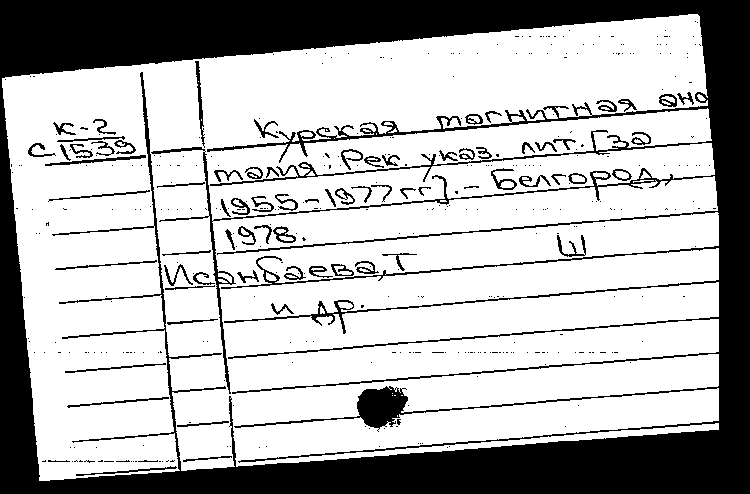 К-2
С 1539
Курская магнитная ано
малия: Рек. указ. лит. [за
1955-1977 гг]. - Белгород,
1978.
Ш
Исанбаева, Т
и др.